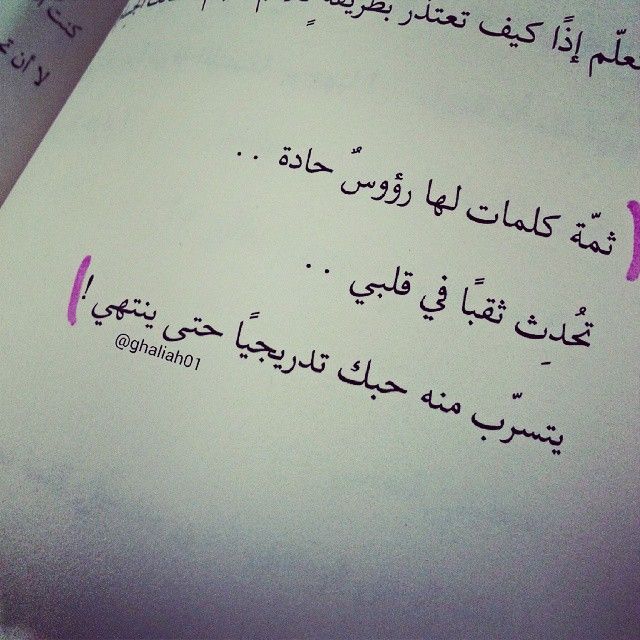 علّم إذًا كيف تعتذر بطريقة
ثمّة كلمات لها رؤوسٌ حادة . .
تُحدِث ثقبًا في قلبي . .
يتسرّب منه حبك تدريجيًا حتى ينتهي!
@ghaliah01
كنت
لا أن